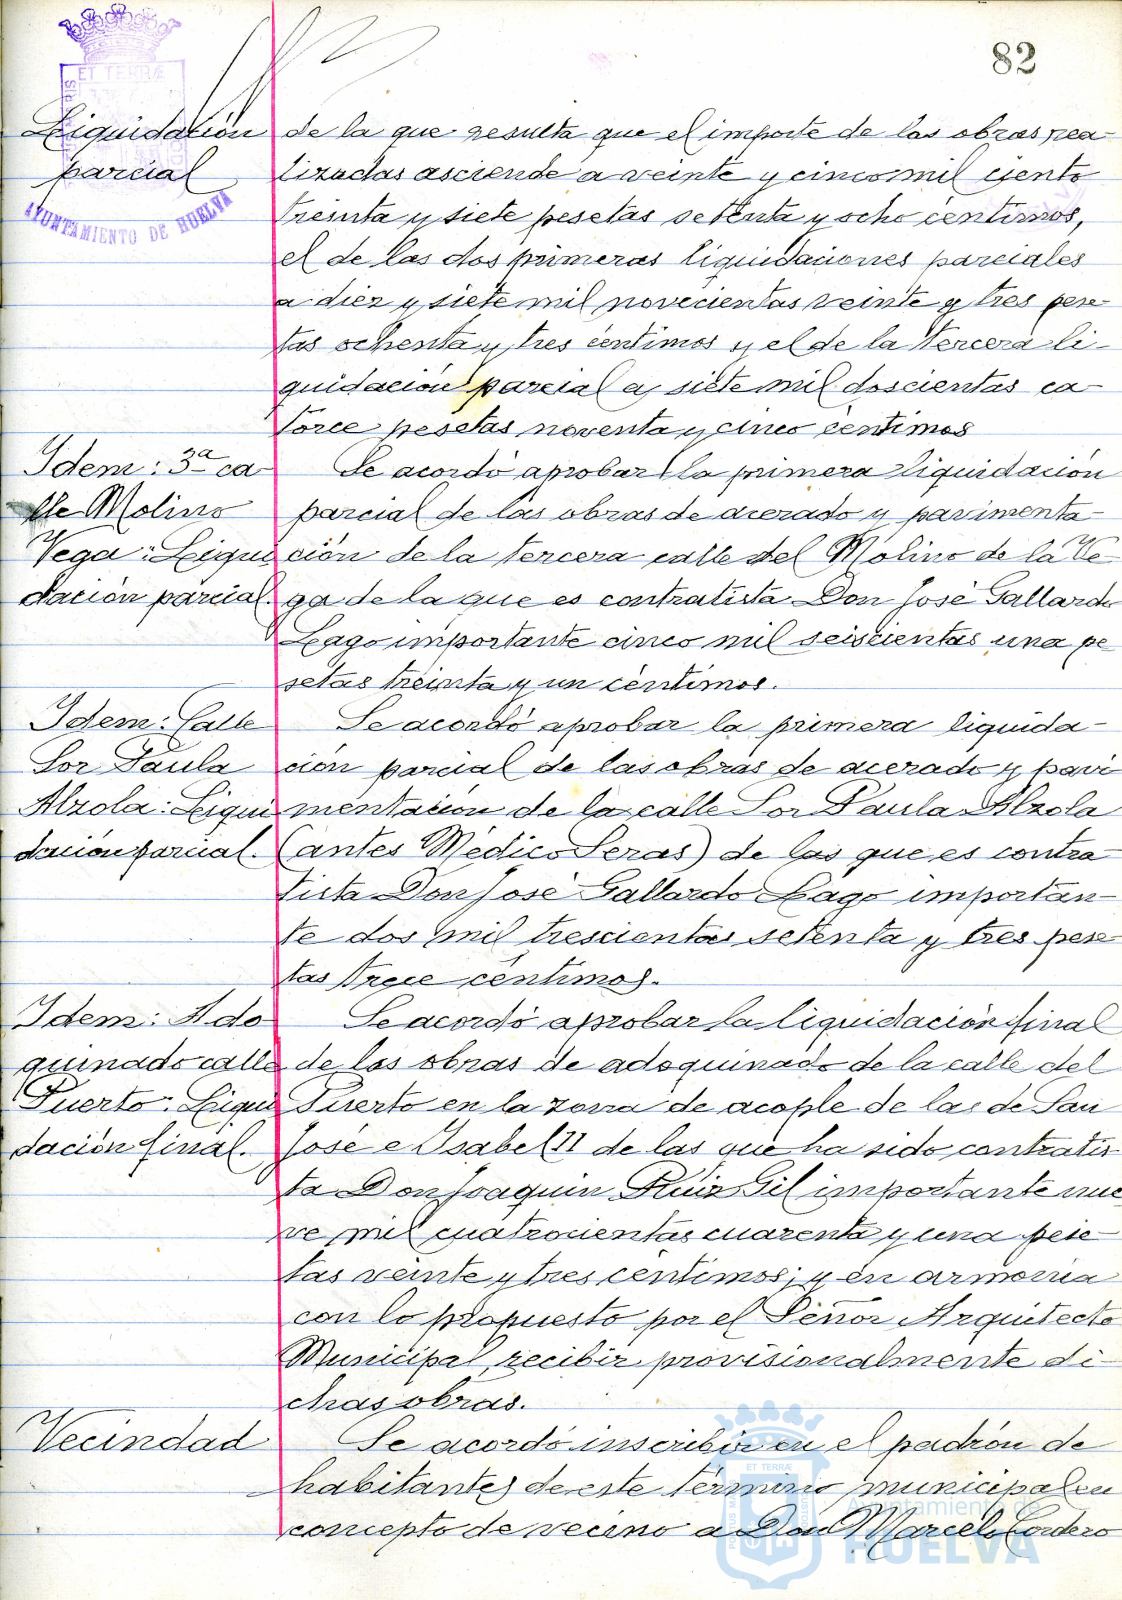 82
ET TERRÆ
AYUNTAMIENTO DE HUELVA
Liquidación
parcial
de la que resulta que el importe de las obras rea-
lizadas asciende a veinte y cinco mil ciento
treinta y siete pesetas setenta y ocho centimos,
el de las dos primeras liquidaciones parciales
a diez y siete mil novecientas veinte y tres pese-
tas ochenta y tres céntimos y el de la tercera li-
quidación parcial a siete mil doscientas ca-
torce pesetas noventa y cinco centimos
Idem: 3ª ca
lle Molino
Vega: Liqui
dación parcial.
Se acordó aprobar la primera liquidación
parcial de las obras de acerado y pavimenta-
ción de la tercera calle del Molino de la Ve-
ga de la que es contratista Don José Gallardo
Lago importante cinco mil seiscientas una pe
setas treinta y un céntimos.
Idem: Calle
Sor Paula
Alzola: Liqui
dación parcial.
Se acordó aprobar la primera liquida-
ción parcial de las obras de acerado y pavi
mentación de la calle Sor Paula Alzola
(antes Médico Seras) de las que es contra
tista Don José Gallardo Lago importan-
te dos mil trescientas setenta y tres pese-
tas trece céntimos.
Idem: Ado
quinado calle
Puerto: Liqui
dación final.
Se acordó aprobar la liquidación final
de las obras de adoquinado de la calle del
Puerto en la zona de acople de las de San
José e Isabel II de las que ha sido contratis-
ta Don Joaquin Ruiz Gil importante nue
ve mil cuatrocientas cuarenta y una pese-
tas veinte y tres céntimos; y en armonia
con lo propuesto por el Señor Arquitecto
Municipal, recibir provisionalmente di-
chas obras.
Vecindad
Se acordó inscribir en el padrón de
habitantes de este término municipal en
concepto de vecino a Don Marcelo Cordero
ET TERRÆ
Ayuntamiento de
HUELVA